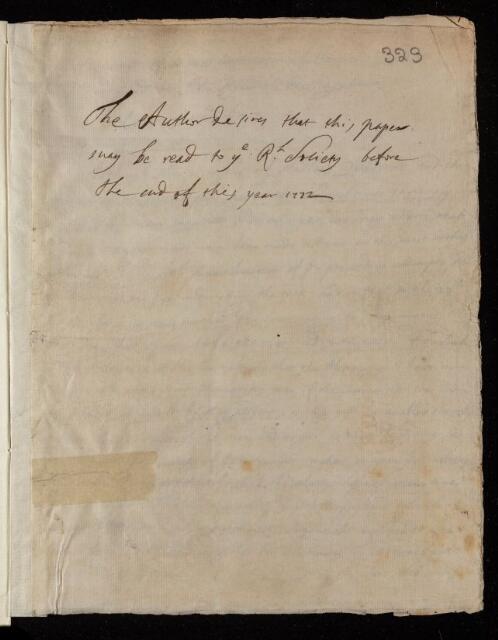 323
The Author desires that this paper
may be read to yᵉ Rˡˡ Society before
the end of this year 1722